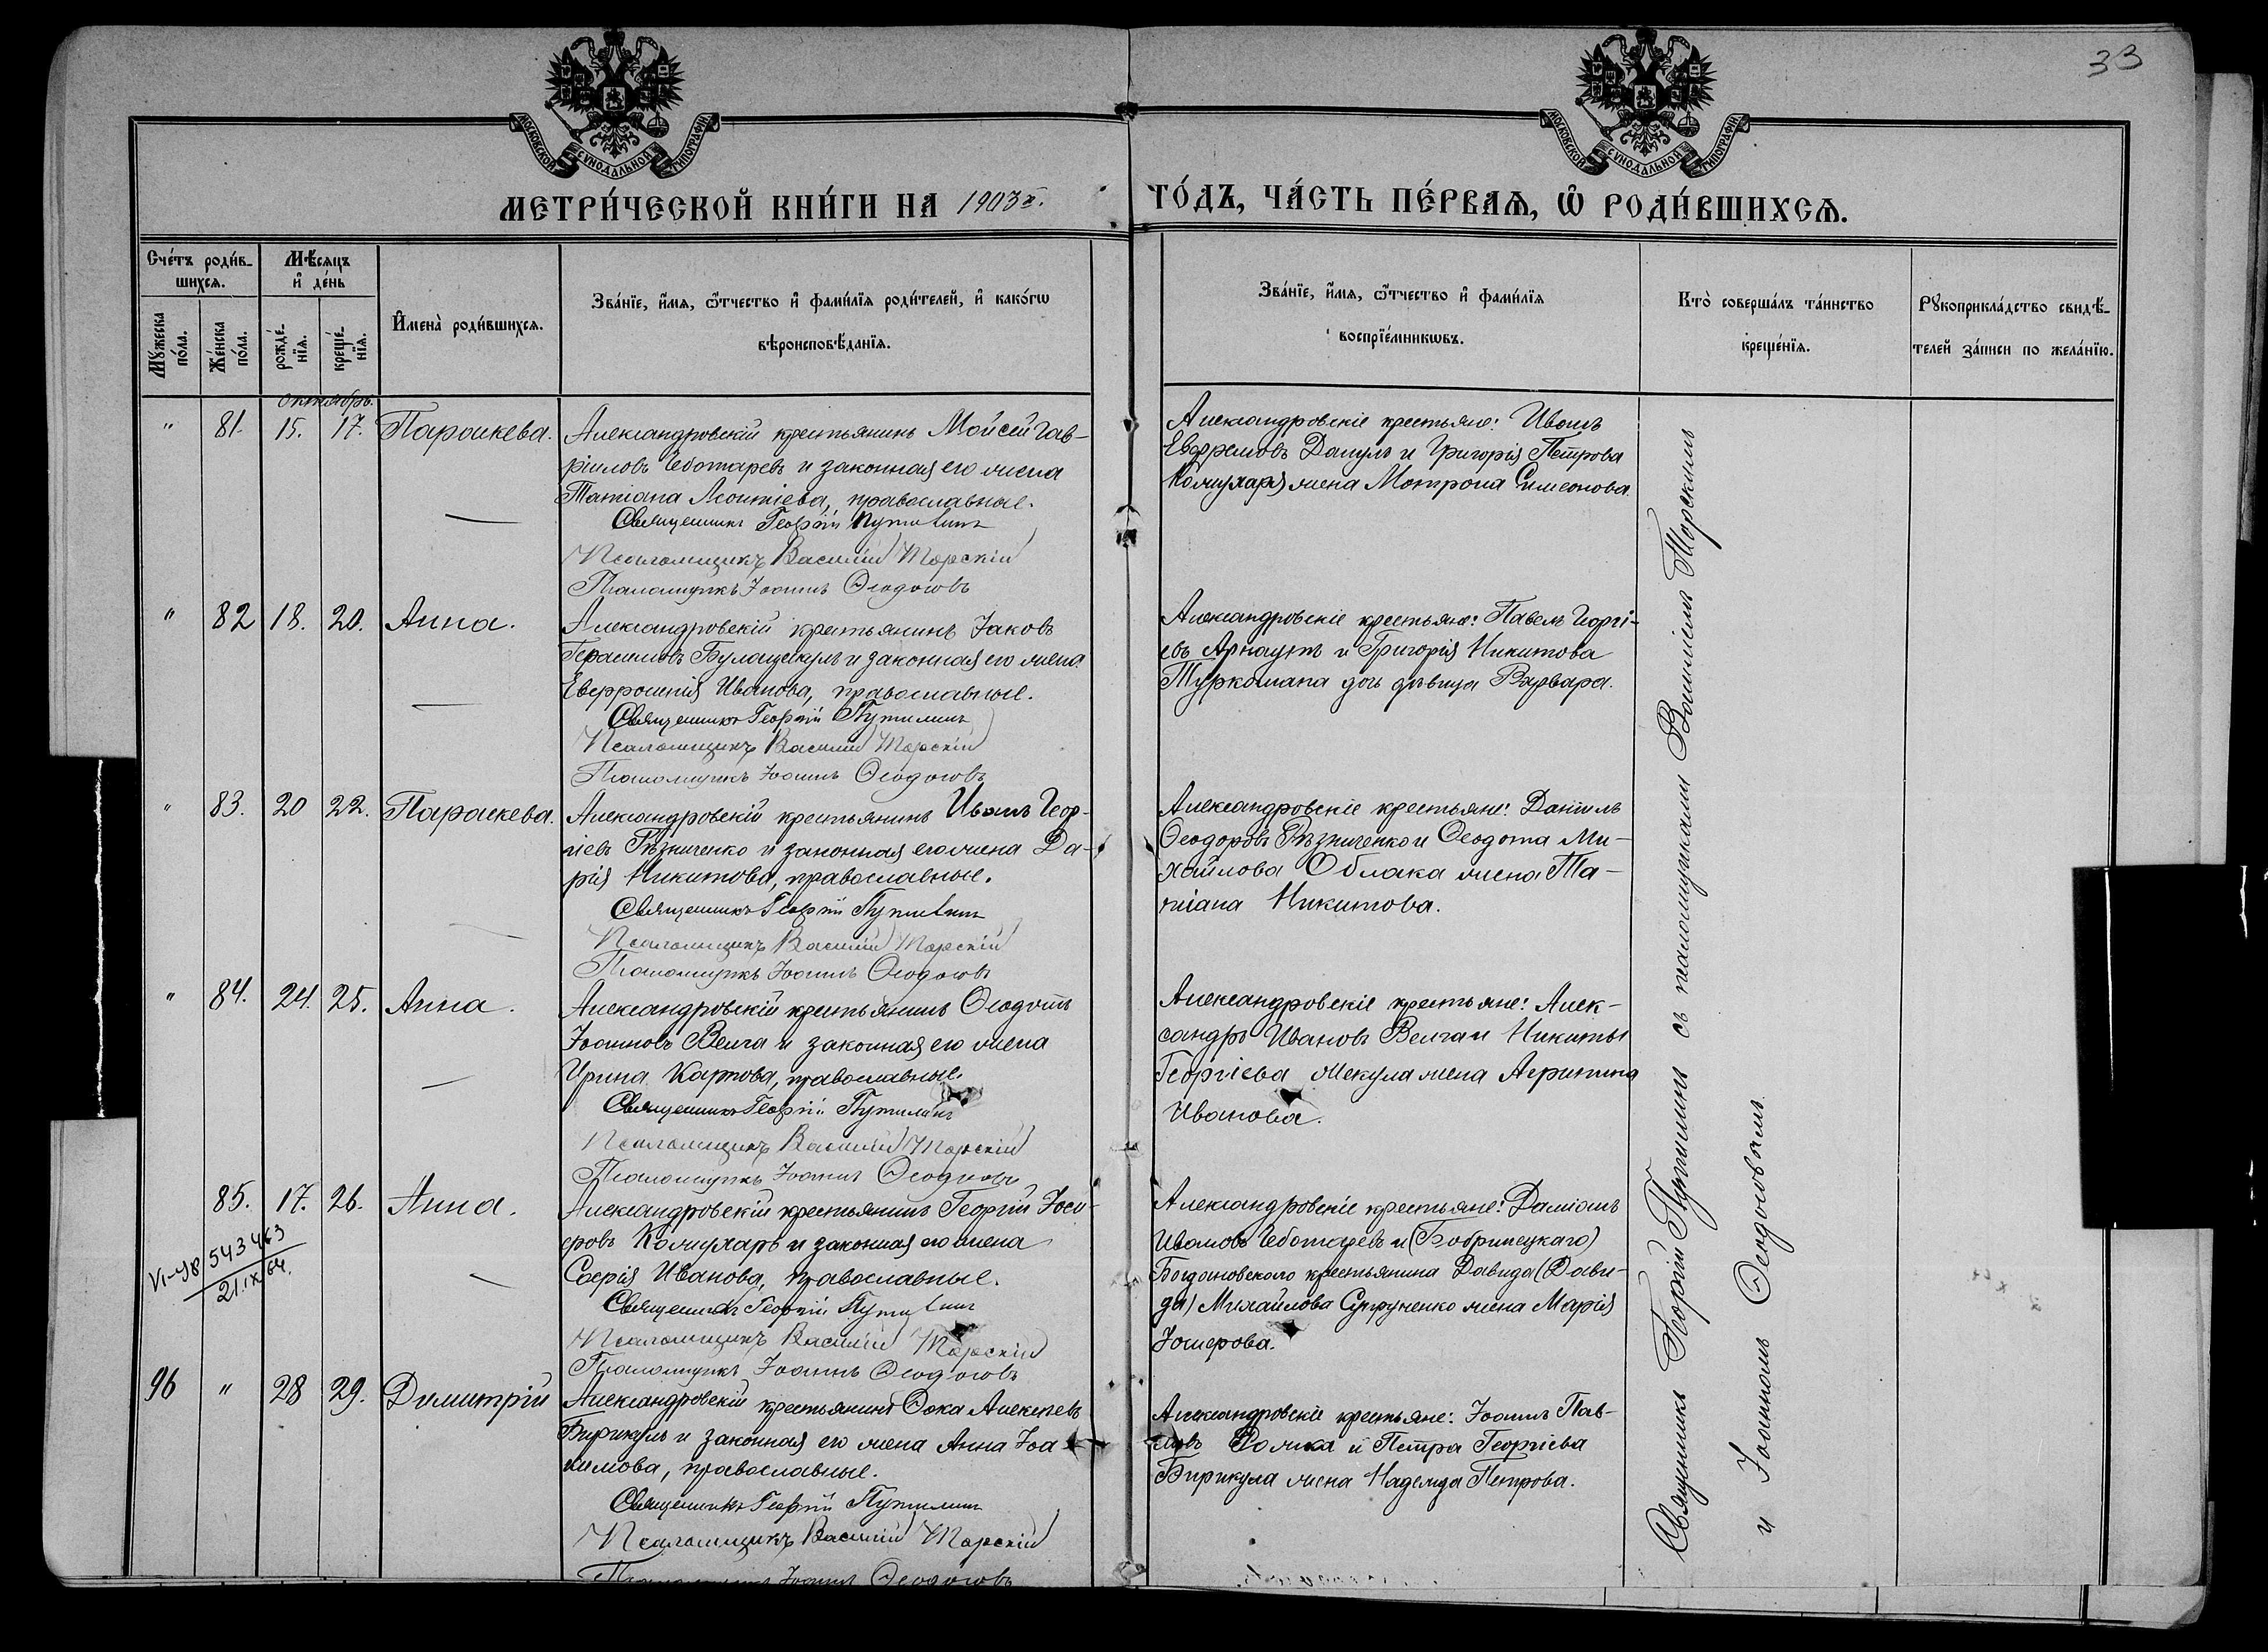 33
МОСКОВСКОЙ СѴНОДАЛЬНОЙ ТИПОГРАФІИ
МОСКОВСКОЙ СѴНОДАЛЬНОЙ ТИПОГРАФІИ
МЕТРИ́ЧЕСКОЙ КНИ́ГИ НА 1903 г. ГО́ДЪ, ЧА́СТЬ ПЕ́РВАѦ, Ѡ РОДИ́ВШИХСѦ.
Сче́тъ роди́в-
шихсѧ.
Мꙋжеска по́ла.
Же́нска по́ла.
Мѣ́сяцъ
и де́нь
рожде́-
нїѧ.
креще́-
нїѧ.
Имена̀ роди́вшихсѧ.
Зва́нїе, и́мѧ, ѻ́тчество и фами́лїѧ роди́телей, и како́гѡ
вѣроисповѣ́данїѧ.
Зва́нїе, и́мѧ, ѻ́тчество и фами́лїѧ
воспрїе́мникѡвъ.
Кто̀ соверша́лъ та́инство
креще́нїѧ.
Рꙋкоприкла́дство свидѣ́-
телей за́писи по жела́нїю.
октябрь.
" 81. 15. 17. Параскева.
Александровскій крестьянинъ Мойсей Гав-
ріиловъ Чеботаревъ и законная его жена
Татіана Леонтіева, православные.
Священникъ Георгій Путилинъ
Псаломщикъ Василій Торскій
Псаломщикъ Іоаннъ Ѳеодосовъ
Александровскіе крестьяне: Иванъ
Евфремовъ Данулъ и Григорія Петрова
Кожухаря жена Матрона Симеонова.
" 82 18. 20. Анна.
Александровскій крестьянинъ Іаковъ
Герасимовъ и законная его жена
Евфросинія Иванова, православные.
Священникъ Георгій Путилинъ
Псаломщикъ Василій Торскій
Псаломщикъ Іоаннъ Ѳеодосовъ
Александровскіе крестьяне: Павелъ Георгі-
евъ Арнаутъ и Григорія Никитова
Туркомана дочь дѣвица Варвара.
" 83. 20 22. Параскева.
Александровскій крестьянинъ Иванъ Геор-
гіевъ Рѣзниченко и законная его жена Да-
рія Никитова, православные.
Священникъ Георгій Путилинъ
Псаломщикъ Василій Торскій
Псаломщикъ Іоаннъ Ѳеодосовъ
Александровскіе крестьяне: Даніилъ
Ѳеодоровъ Рѣзниченко и Ѳеодота Ми-
хайлова Облака жена Та-
тіана Никитова.
" 84. 24. 25. Анна.
Александровскій крестьянинъ Ѳеодотъ
Іоанновъ Велча и законная его жена
Ирина Карпова, православные.
Священникъ Георгій Путилинъ
Псаломщикъ Василій Торскій
Псаломщикъ Іоаннъ Ѳеодосовъ
Александровскіе крестьяне: Алек-
сандръ Ивановъ Велча и Никиты
Георгіева Жекула жена Агрипина
Иванова.
85. 17. 26. Анна.
VI-ЯВ 543463
21.IX 64.
Александровскій крестьянинъ Георгій Іоси-
фовъ Кожухарь и законная его жена
Софія Иванова, православные.
Священникъ Георгій Путилинъ
Псаломщикъ Василій Торскій
Псаломщикъ Іоаннъ Ѳеодосовъ
Александровскіе крестьяне: Даміанъ
Ивановъ Чеботаревъ и (Бобринецкаго)
Богдановскаго крестьянина Давида (Дави-
да) Михайлова Супруненко жена Марія
Іосифова.
96 " 28 29. Димитрій
Александровскій крестьянинъ Ѳока Алексѣевъ
Бирикулъ и законная его жена Анна Іоа-
кимова, православные.
Священникъ Георгій Путилинъ
Псаломщикъ Василій Торскій
Псаломщикъ Іоаннъ Ѳеодосовъ
Александровскіе крестьяне: Іоаннъ Пав-
ловъ и Петра Георгіева
Бирикула жена Надежда Петрова.
Священникъ Георгій Путилинъ съ псаломщиками Василіемъ Торскимъ
и Іоанномъ Ѳеодосовымъ.